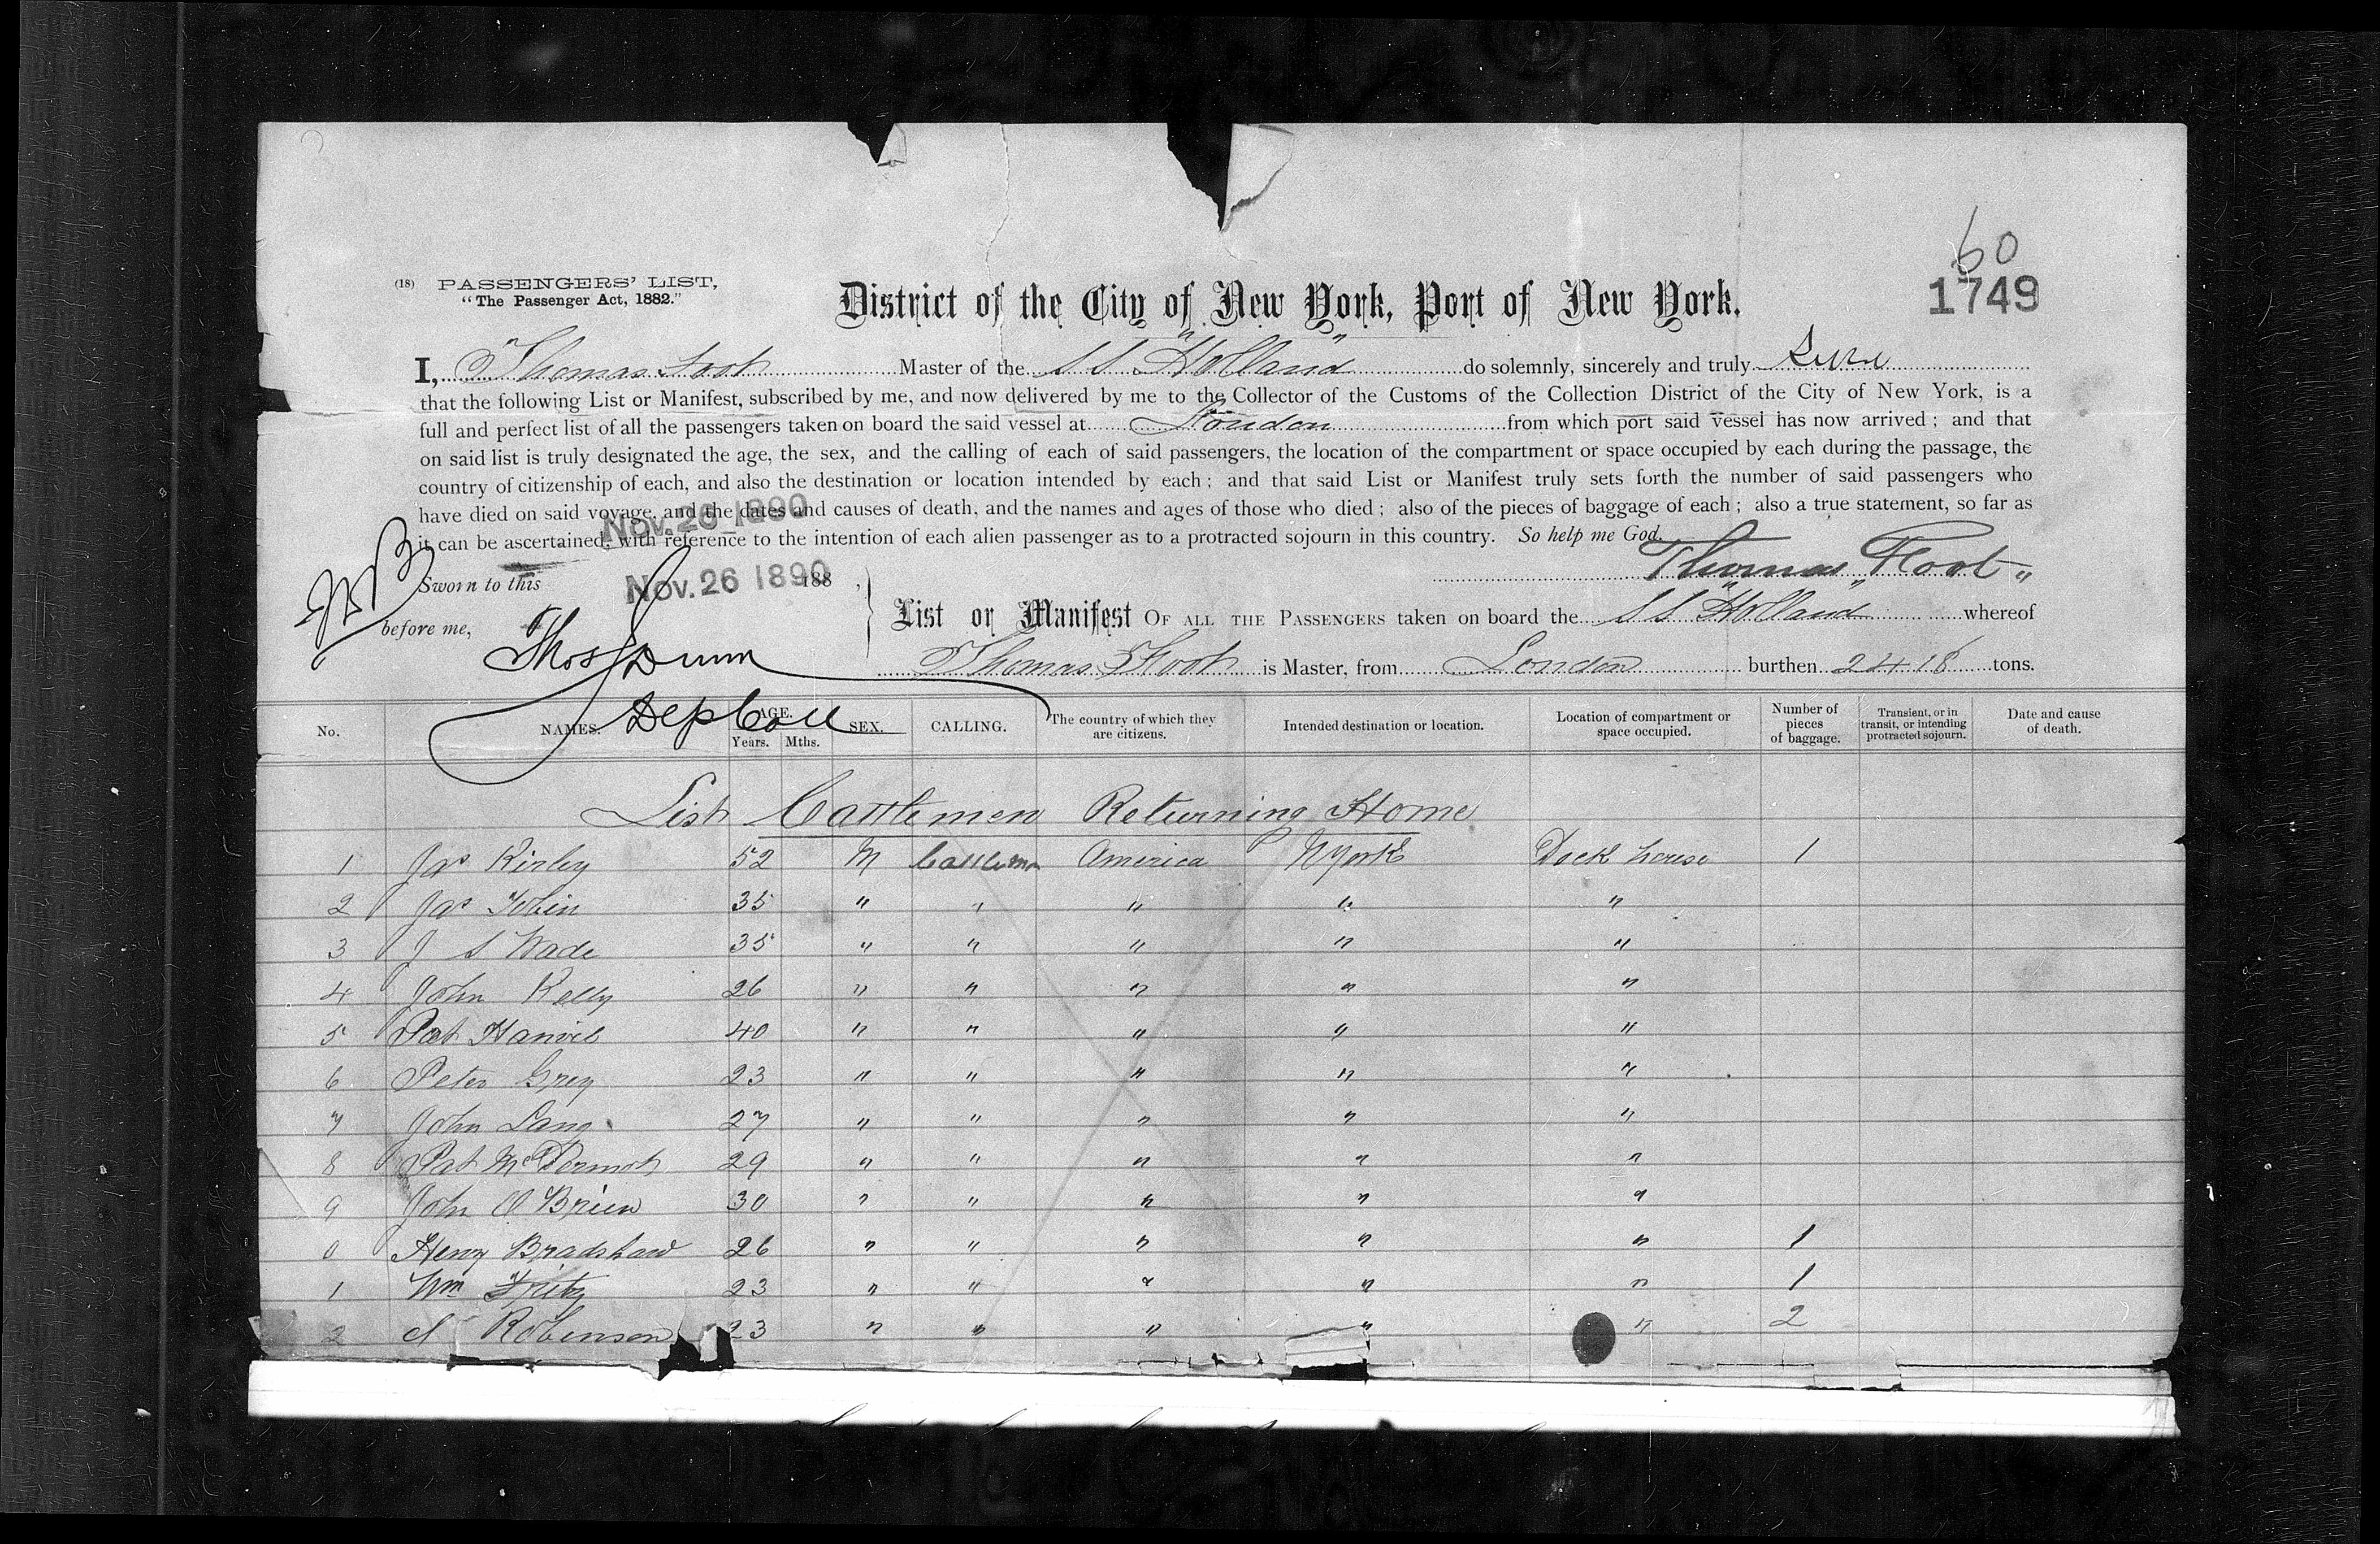 60
(18) PASSENGERS' LIST,
"The Passenger Act, 1882."
District of the City of New York, Port of New York.
1749
I, Thomas Foot Master of the S.S. "Holland" do solemnly, sincerely and truly
that the following List or Manifest, subscribed by me, and now delivered by me to the Collector of the Customs of the Collection District of the City of New York, is a
full and perfect list of all the passengers taken on board the said vessel at London from which port said vessel has now arrived; and that
on said list is truly designated the age, the sex, and the calling of each of said passengers, the location of the compartment or space occupied by each during the passage, the
country of citizenship of each, and also the destination or location intended by each; and that said List or Manifest truly sets forth the number of said passengers who
have died on said voyage, and the dates and causes of death, and the names and ages of those who died; also of the pieces of baggage of each; also a true statement, so far as
Nov. 26 1890
it can be ascertained, with reference to the intention of each alien passenger as to a protracted sojourn in this country. So help me God.
Thomas Foot
Sworn to this Nov. 26 1890 188 ,
before me,
Thos Dunn
Dep Coll
List or Manifest OF ALL THE PASSENGERS taken on board the S.S. "Holland" whereof
Thomas Foot is Master, from London burthen 2418 tons.
No. NAMES. AGE. Years. Mths. SEX. CALLING. The country of which they are citizens. Intended destination or location. Location of compartment or space occupied. Number of pieces of baggage. Transient, or in transit, or intending protracted sojourn. Date and cause of death.
List Cattlemen Returning Home
1 Jas Kirley 52 M Cattleman America N York Deck house 1
2 Jas Tobin 35 " " " " "
3 J S Wade 35 " " " " "
4 John Kelly 26 " " " " "
5 Pat 40 " " " " "
6 Peter Grey 23 " " " " "
7 John Lang 27 " " " " "
8 Pat McDermot 29 " " " " "
9 John O Brien 30 " " " " "
0 Henry Bradshaw 26 " " " " " 1
1 Wm Fritz 23 " " " " " 1
2 Robinson 23 " " " " " 2